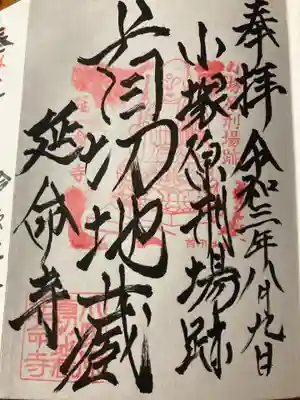 奉拝 令和二年八月九日
小塚原刑場跡
首切地蔵
延命寺